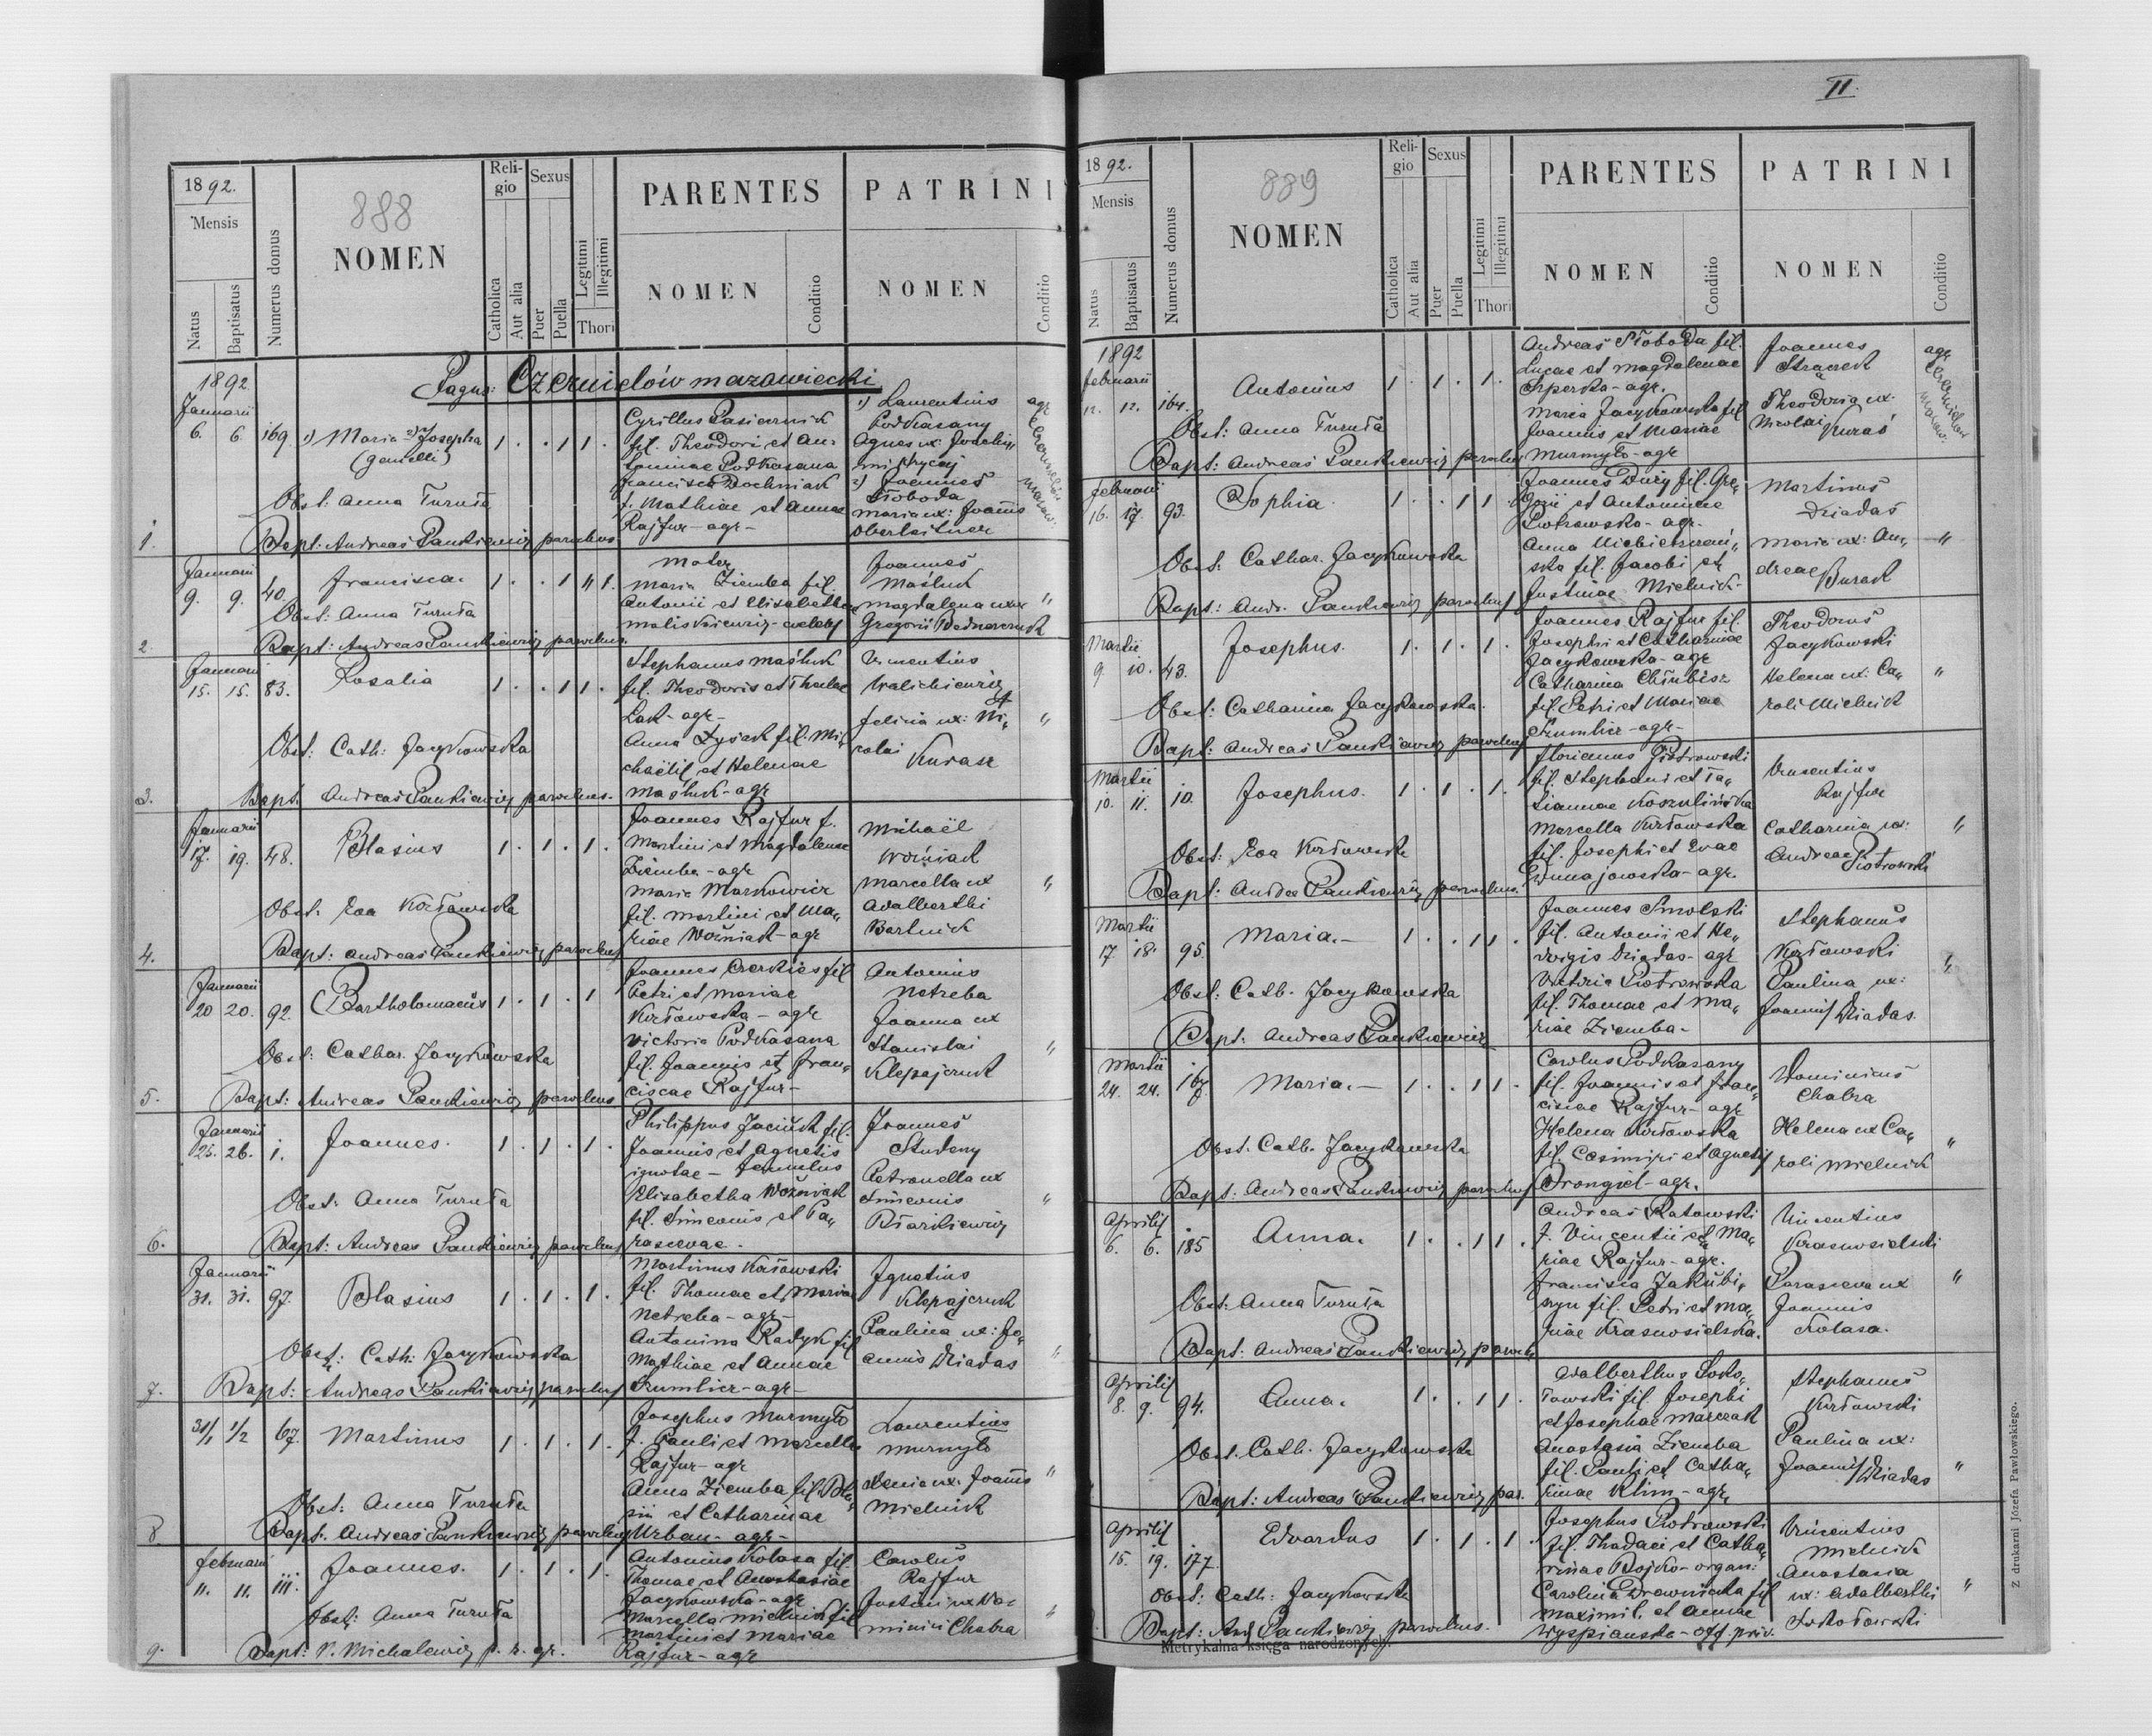 1892.
Mensis
Natus
Baptisatus
Numerus domus
888
NOMEN
Religio
Catholica
Aut alia
Sexus
Puer
Puella
Legitimi
Illegitimi
Thori
PARENTES
NOMEN
Conditio
PATRINI
NOMEN
Conditio
Pagus: Czernielów mazowiecki
1892
Januarii
6. 6. 169. 1) Maria 2) Josepha
(gemelli)
1 . . 1 1 .
Cyrillus Pasiecznik
fil. Theodori et An-
toninae Podkasana
Francisca Dochniak
f. Mathiae et Annae
Rajfur - agr -
1) Laurentius
Podkasany
Agnes ux: Joachi„
mi
2) Joannes
Słoboda
Maria ux: Joannis
Oberleitner
agr
Obst: Anna Turuta
1. Bapt: Andreas Pankiewicz parochus
Januarii
9. 9. 40. Francisca.
1 . . 1 " 1.
mater
Maria Ziemba fil
Antonii et Elisabethae
Joannes
Maśluk
Magdalena uxor
Gregorii Bednarczuk
"
Obst: Anna Turuta
2. Bapt: Andreas Pankiewicz parochus.
Januarii
15. 15. 83. Rosalia
1 . . 1 1 .
Stephanus Maśluk
fil. Theodoris et Theclae
Łak - agr -
Anna Łysiak fil. Mi„
chaëlis et Helenae
Maśluk - agr
Vincentius
Walichiewicz
Felicia ux: Ni„
colai
Kurasz
"
Obst: Cath: Jacykowska
3. Bapt. Andreas Pankiewicz parochus.
Januarii
17. 19. 48. Blasius
1 . 1 . 1 .
Joannes Rajfur f.
Martini et Magdalenae
Ziemba - agr
Maria Markowicz
fil. Martini et Ma„
riae Woźniak - agr
Michaël
Woźniak
Marcella ux
Adalberthi
Bartnick
"
Obst. Eva Kozłowska
4. Bapt: Andreas Pankiewicz parochus
Januarii
20 20. 92. Bartholomaeus
1 . 1 . 1
Joannes Czerkies fil
Petri et Mariae
Kozłowska - agr
Victoria Podkasana
fil. Joannis et Fran„
ciscae Rajfur -
Antonius
Netreba
Joanna ux
Stanislai
Klepajczuk
"
Obst: Cathar. Jacykowska
5. Bapt: Andreas Pankiewicz parochus
Januarii
25. 26. 1. Joannes.
1 . 1 . 1 .
Philippus Jaciuk fil.
Joannis et Agnetis
ignotae - famulus
Elisabetha Woźniak
fil. Simeonis et Pa„
rascevae.
Joannes
Studeny
Petronella ux
Simeonis
"
Obst: Anna Turuta
6. Bapt: Andreas Pankiewicz parochus
Januarii
31. 31. 97. Blasius
1 . 1 . 1 .
Martinus Katowski
fil. Thomae et Maria
Netreba - agr -
Antonina Radyk fil
Mathiae et Annae
Szumlicz - agr -
Ignatius
Klepajczuk
Paulina ux: Jo„
annis Dziadas
"
Obst: Cath: Jacykowska
7. Bapt: Andreas Pankiewicz parochus
31/1 1/2 67. Martinus
1 . 1 . 1 .
Josephus Murmyło
f. Pauli et Marcellae
Rajfur - agr
Anna Ziemba fil. Bla„
sii et Catharinae
Urban - agr -
Laurentius
Murmyło
Xenia ux: Joannis
Mielnik
"
Obst: Anna Turuta
8. Bapt. Andreas Pankiewicz parochus
Februarii
11. 11. 111. Joannes.
1 . 1 . 1 .
Antonius Kolasa fil.
Thomae et Anastasiae
Jacykowska - agr
Marcella Mielnik fil
Martini et Mariae
Rajfur - agr
Carolus
Rajfur
Justina ux Do-
minici Chabra
"
Obst: Anna Turuta
9. Bapt: N. Michalewicz p. r. gr.
II.
1892.
Mensis
Natus
Baptisatus
Numerus domus
889
NOMEN
Religio
Catholica
Aut alia
Sexus
Puer
Puella
Legitimi
Illegitimi
Thori
PARENTES
NOMEN
Conditio
PATRINI
NOMEN
Conditio
1892
Februarii
12. 12. 164. Antonius
1 . 1 . 1 .
Andreas Słoboda fil.
Lucae et Magdalenae
Szperka - agr.
Maria Jacykowska fil
Joannis et Mariae
Murmyło - agr
Joannes
Strączek
Theodoria ux.
Nicolai Kuraś
agr
Obst: Anna Turuta
Bapt: Andreas Pankiewicz parochus
Februarii
16. 17. 93. Sophia
1 . . 1 1 .
Joannes Duży fil. Gre„
gorii et Antoninae
Piotrowska - agr.
ska fil. Jacobi et
Justinae Mielnick -
Martinus
Dziadas
Maria ux: An„
dreae Burack
"
Obst. Cathar. Jacykowska
Bapt: Andr. Pankiewicz parochus
Martii
9. 10. 43. Josephus.
1 . 1 . 1 .
Joannes Rajfur fil.
Josephi et Catharinae
Jacykowska - agr
Catharina Chirbisz
fil. Petri et Mariae
Szumlicz - agr -
Theodorus
Jacykowski
Helena ux: Ca„
roli Mielnick
"
Obst: Catharina Jacykowska.
Bapt: Andreas Pankiewicz parochus
Martii
10. 11. 10. Josephus.
1 . 1 . 1 .
Florianus Piotrowski
fil. Stephani et Ta„
tiannae Koszulińska
Marcella Kozłowska
fil. Josephi et Evae
Vincentius
Rajfur
Catharina ux:
Andreae Piotrowski
"
Obst: Eva Kozłowska
Bapt: Andrea Pankiewicz parochus.
Martii
17. 18. 95. Maria. -
1 . . 1 1 .
Joannes Smolski
fil. Antonii et He„
dvigis Dziadas - agr
Victoria Piotrowska
fil. Thomae et Ma„
riae Ziemba -
Stephanus
Kozłowski
Paulina ux:
Joannis Dziadas.
"
Obst: Cath. Jacykowska
Bapt: Andreas Pankiewicz
Martii
24. 24. 167. Maria. -
1 . . 1 1 .
Carolus Podkasany
fil. Joannis et Fran„
ciscae Rajfur - agr
Helena Kozłowska
fil. Casimiri et Agnetis
Drongiel - agr.
Dominicus
Chabra
Helena ux Ca„
roli Mielnick
"
Obst. Cath. Jacykowska
Bapt: Andreas Pankiewicz parochus
Aprilis
6. 6. 185 Anna.
1 . . 1 1 .
Andreas Ratowski
f. Vincentii et Ma„
riae Rajfur - agr.
Francisca Jakubi„
szyn fil. Petri et Ma„
riae Krasnosielska.
Vincentius
Krasnosielski
Parasceva ux
Joannis
Kolasa.
"
Obst: Anna Turuta
Bapt: Andreas Pankiewicz paroch
Aprilis
8. 9. 94. Anna.
1 . . 1 1 .
Adalberthus Soko„
łowski fil. Josephi
et Josephae Marczak
Anastasia Ziemba
fil. Pauli et Catha„
rinae Klim - agr
Stephanus
Kozłowski
Paulina ux:
Joannis Dziadas
"
Obst. Cath. Jacykowska
Bapt: Andreas Pankiewicz par.
Aprilis
15. 19. 177. Edvardus
1 . 1 . 1 .
Josephus Piotrowski
fil. Thadaei et Catha„
rinae Bojko - organ:
Carolina Zdrownicka fil
Maximil. et Annae
Wyspianska - off. priv.
Vincentius
Mielnick
Anastasia
ux: Adalberthi
Sokołowski
"
Obst: Cath: Jacykowska
Bapt: And Pankiewicz parochus.
Metrykalna księga narodzonych.
Z drukarni Józefa Pawłowskiego.